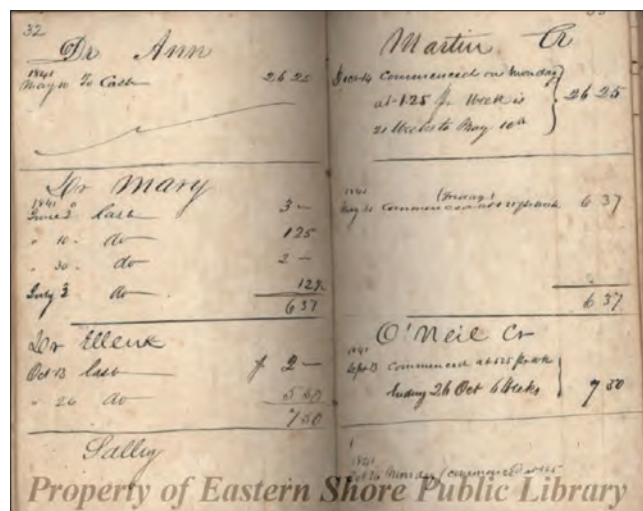 32
Dr Ann
1841
May 10 To Cash 26 25
Dr Mary
1841
June 2 Cash 3 —
" 10 - do 1 25
" 30 - do 2 —
July 3 do 12
6 37
Dr Ellen
Oct 13 Cash $ 2 —
" 26 do 5 50
7 50
Sally
Martin Cr
Dec 14 Commenced on Monday
at 1.25 pr Week is 26 25
21 Weeks to May 10th
1841
(Friday)
May Commenced 6 37
6 37
O'Neil Cr
1841
Sept 13 Commenced at 1.25 pr wk
Ending 26 Oct 6 Weeks 7 50
1841
Oct 26 Monday Commenced at 1.25
Property of Eastern Shore Public Library